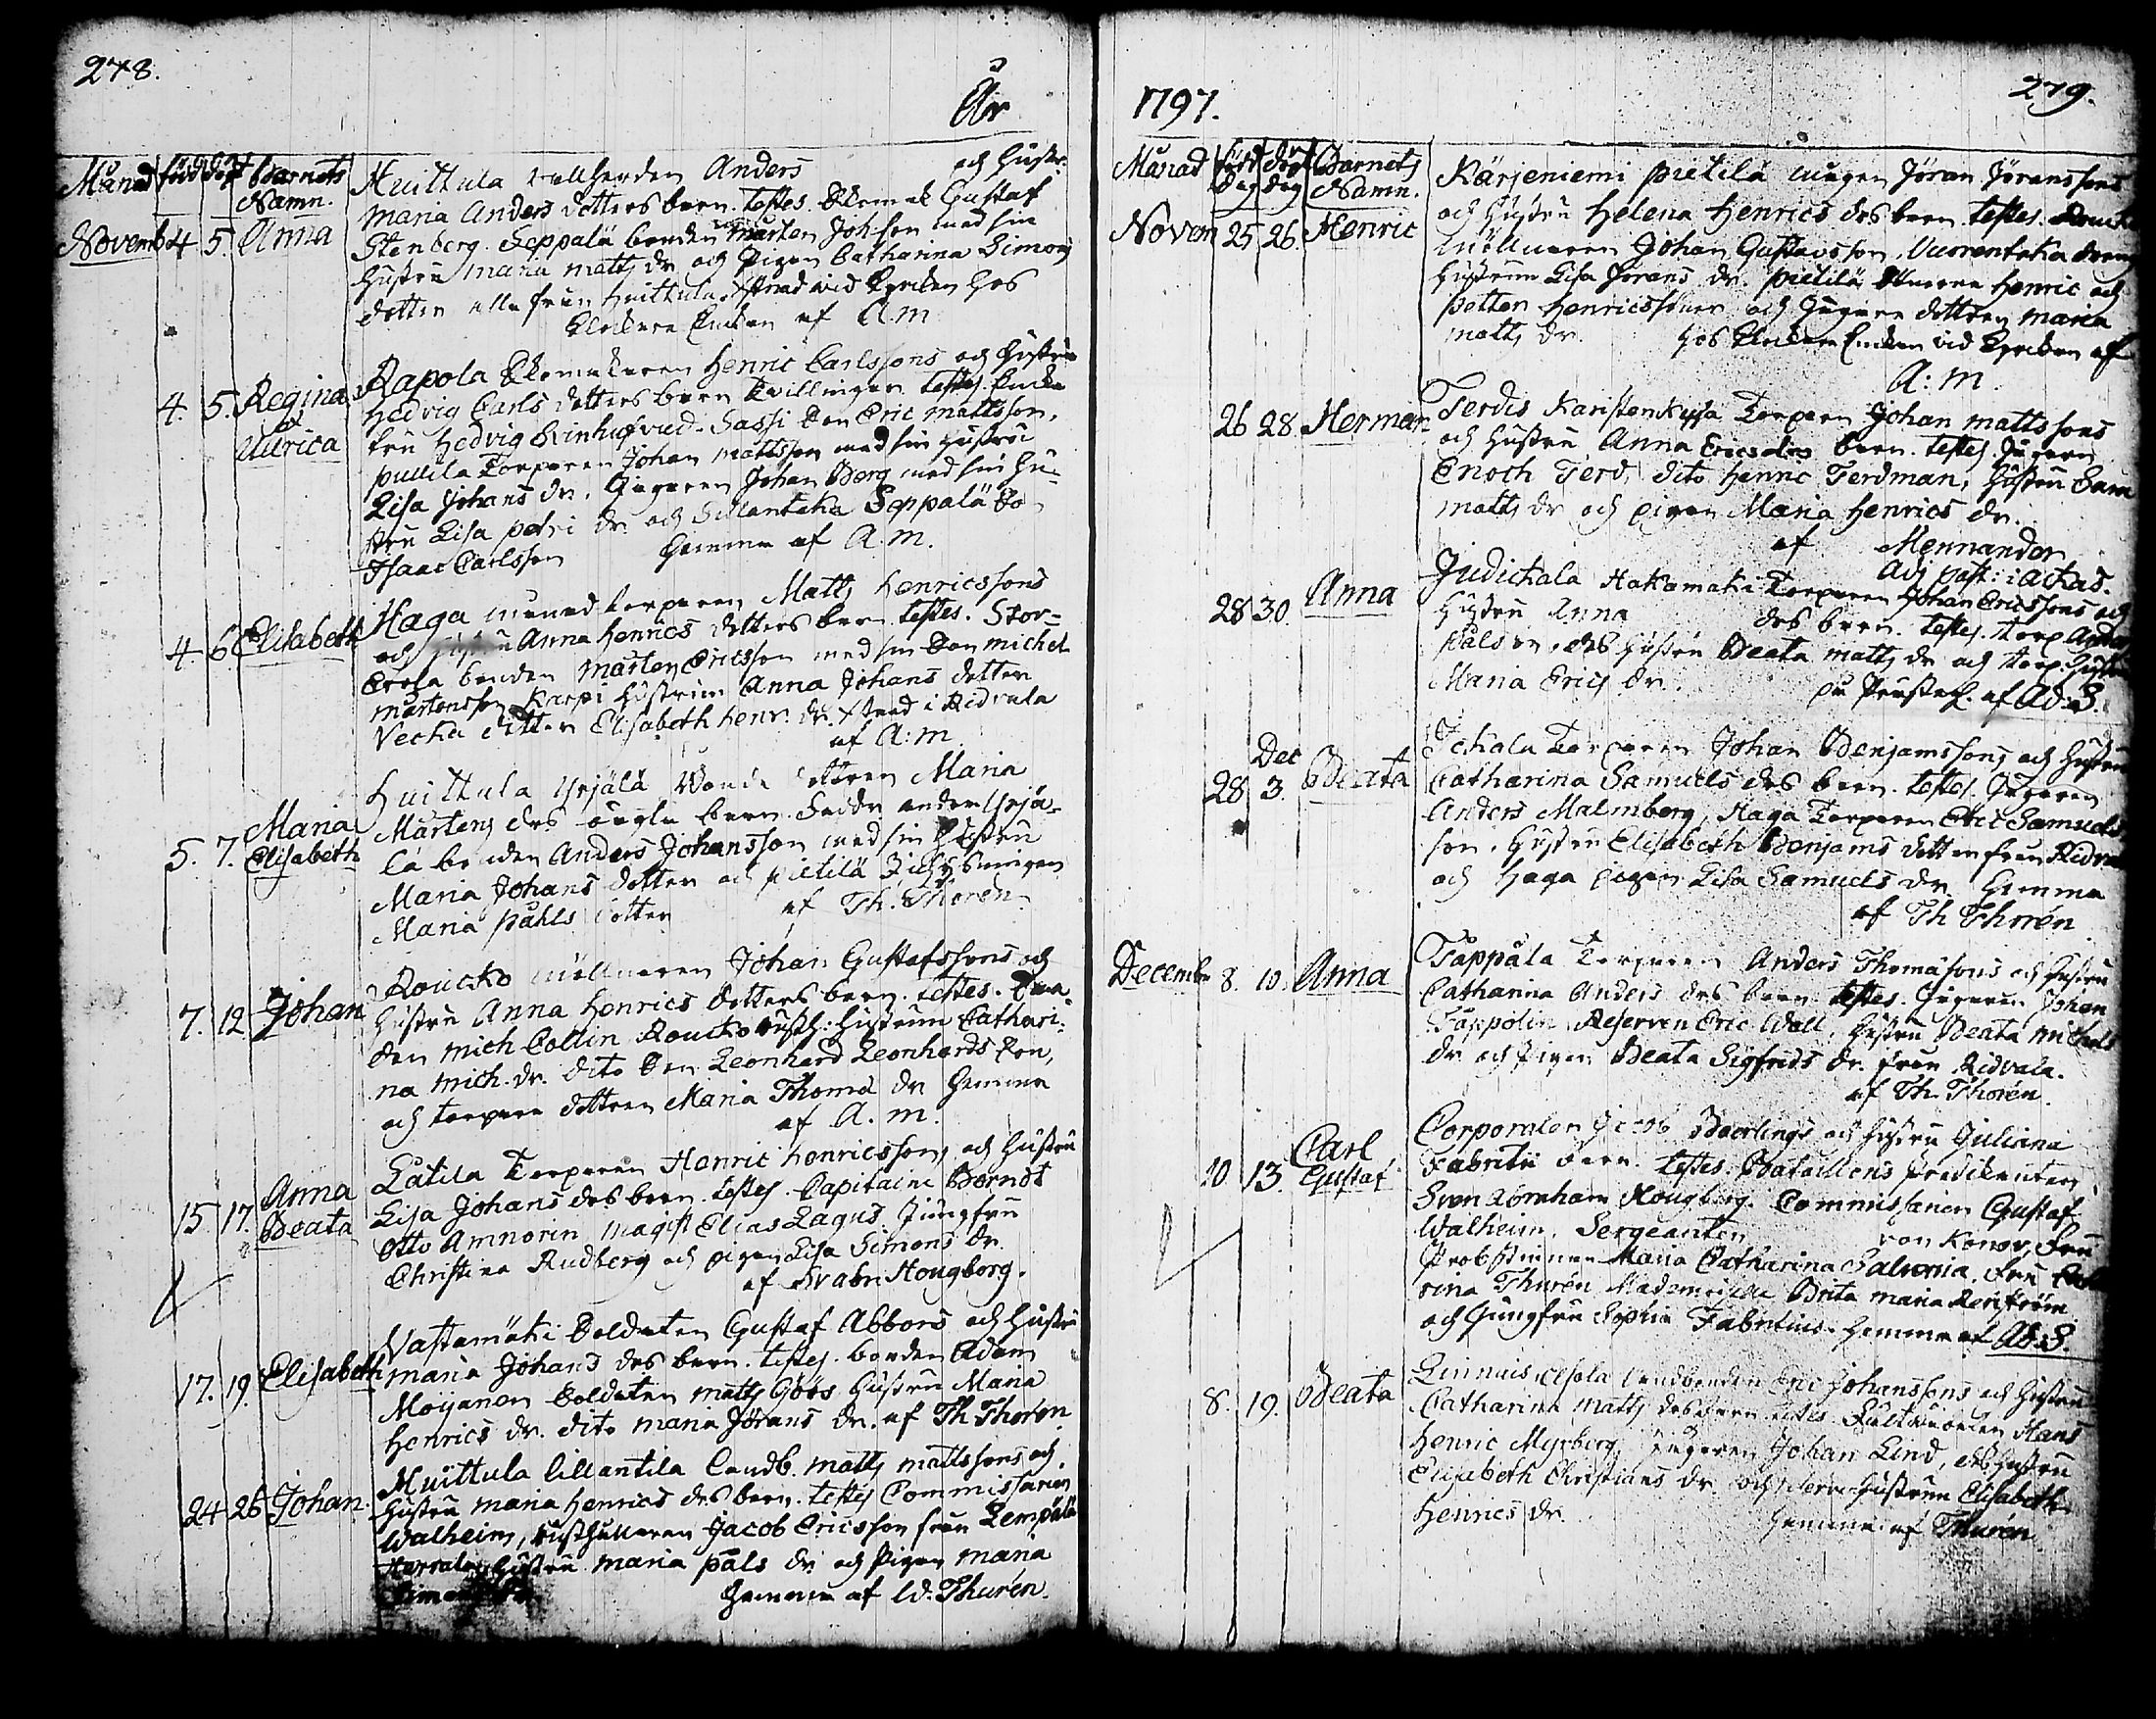 278.
År
Månad född döpt Barnets
Namn.
Novemb 4. 5. Anna
Huittula vallherden Anders och Hustr.
Maria Anders dotters barn. testes. Gustaf
Stenberg. Seppälä bonden Mårten Joh:son med sin
Hustru Maria Matts dr och Pigan Catharina Simons
dotter alla från Huittula. hos
af A.M
4. 5. Regina
&
Ulrica
Rapola Henric Carlssons och Hustru
Hedvig Carls dotters barn Tvillingar. testes. Enke
fru Hedvig Svinhufvud. Sassi Son Eric Mattsson,
Pullila Torparen Johan Mattsson med sin Hustru
Lisa Johans dr. Jägaren Johan Berg med sin Hu-
stru Lisa Petri dr och Sillantaka Seppälä So-
Isaac Carlsson hemma af A.M.
4. 6. Elisabeth
Haga torparen Matts Henricssons
och Hustru Anna Henrics dotters barn testes. Stor-
Erola bonden Mårten Ericsson med sin Son Michel
Mårtensson, Karpi Hustrun Anna Johans dotter
Vecka dotter Elisabeth Henr: dr. i Ridvala
af A:M
5. 7. Maria
Elisabeth
Huittula Yrjälä Bonde dottren Maria
Mårtens des oägta barn. Yrjä-
lä bonden Anders Johansson med sin Hustru
Maria Johans dotter och Pietilä
Maria Påhls dotter af Th. Thorén
7. 12. Johan
Roucko möllnaren Johan Gustafssons och
Hustru Anna Henrics dotters barn. testes.
den Mich Collin Roucko rusth: Hustrun Cathari-
na Mich. dr. dito Son Leonhard Leonhards Son,
och torpare dottren Maria Thoma dr hemma
af A. M.
15. 17. Anna
Beata
Latila Torparen Henric Henricssons och Hustru
Lisa Johans drs barn. testes. Capitaine Berndt
Otto Amnorin Magist Elias Lagus. Jungfru
Christina Rudberg och pigan Lisa Simons dr.
af Sv abr Hougborg.
17. 19. Elisabeth
Vastamäki Soldaten Gustaf Abbors och Hustru
Maria Johans drs barn. testes. bonden Adam
Moijanen Soldaten Matts Göös Hustru Maria
Henrics dr. dito Maria Jörans dr. af Th Thorén
24. 26. Johan.
Huittula Lillantila Landb. Matts Mattssons och
Hustru Maria Henrics drs barn. testes Commissarien
Walheim, rusthållaren Jacob Ericsson från Lempälä
Herrala, Hustru Maria Påls dr och Pigan Maria
hemma af Ad. Thurén.
1797.
279.
Månad född Dag döpt dag Barnets
Namn.
Novem 25 26. Henric
Kärjeniemi Pietilä Jöran Jöranssons
och Hustru Helena Henrics drs barn. testes. Roucko
Möllnaren Johan Gustavsson. Vuorentaka dreng
Hustrun Lisa Jörans dr. Pietilä Sönerne Henric och
Petter Henricssöner och Jägare dottren Maria
Matts dr. hos vid af
A:M.
26 28. Herman
Terdis Karistenkyla Torparn Johan Mattssons
och Hustru Anna Erics drs barn. testes. Jägarn
Enoch Terd, dito Henric Terdman, Hustru Sara
Matts dr och pigan Maria Henrics dr.
af Mennander
Adj past: i Ackas.
28 30. Anna
Judickala Hakamäki Torparen Johan Ericssons och
Hustru Anna drs barn. testes. torp Anders
Pålson, des Hustru Beata Matts dr och torp. Hustru
Maria Erics dr. på Prusteg. af Ad. S.
28 Dec 3. Beata
Torparen Johan Benjamssons och Hustru
Catharina Samuels drs barn. testes. Jägaren
Anders Malmberg, Haga Torparen Eric Samuels
son. Hustru Elisabeth Benjams dotter från Ridva
och Haga pigan Lisa Samuels dr hemma
af Th Thorén
Decembe 8. 10. Anna
Täppälä Torparen Anders Thomasons och Hustru
Catharina Anders drs barn. testes. Jägaren Johan
Täppolin, Reserven Eric Wall, Hustru Beata Michels
dr och Pigan Beata Sigfrids dr. från Ridvala.
af Th. Thorén.
10 13. Carl
Gustaf
Corporalen Jacob Baerlings och Hustru Juliana
Fabritii barn. testes. Bataillons Predikanten
Sven Abraham Hougberg. Commissarien Gustaf
Walheim, Sergeanten von Konov, Fru
Probstinnan Maria Catharina Salvenia, fru
rina Thurén Mademoiselle Brita Maria Renström
och Jungfru Sophia Fabritius. hemma af Ad. S.
8. 19. Beata
Linnais Alsola Landbonden Eric Johanssons och Hustru
Catharina Matts drs barn. testes. Hans
Henric Myrberg, Jägaren Johan Lind, des Hustru
Elisabeth Christians dr och Hustrun Elisabeth
Henrics dr. hemma af Thurén